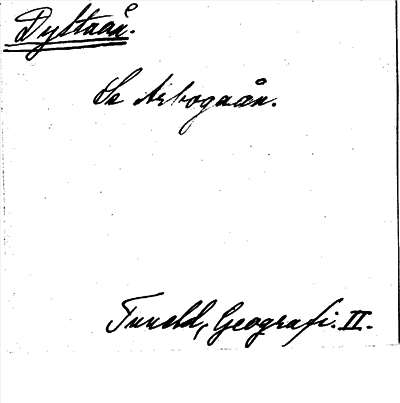 Dyltaån.
Se Arbogaån.
Tuneld, Geografi. II.